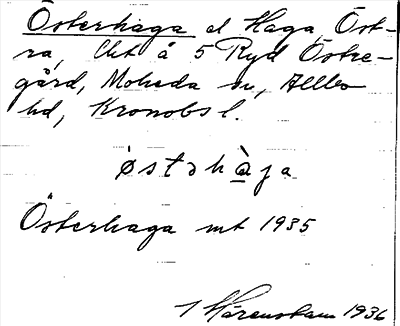 Österhaga el Haga, Öst-
ra, lht å 5 Ryd Östre-
gård, Moheda sn, Allbo
hd, Kronobs l.
østɔhàga
Österhaga mt 1935
Härenstam 1936